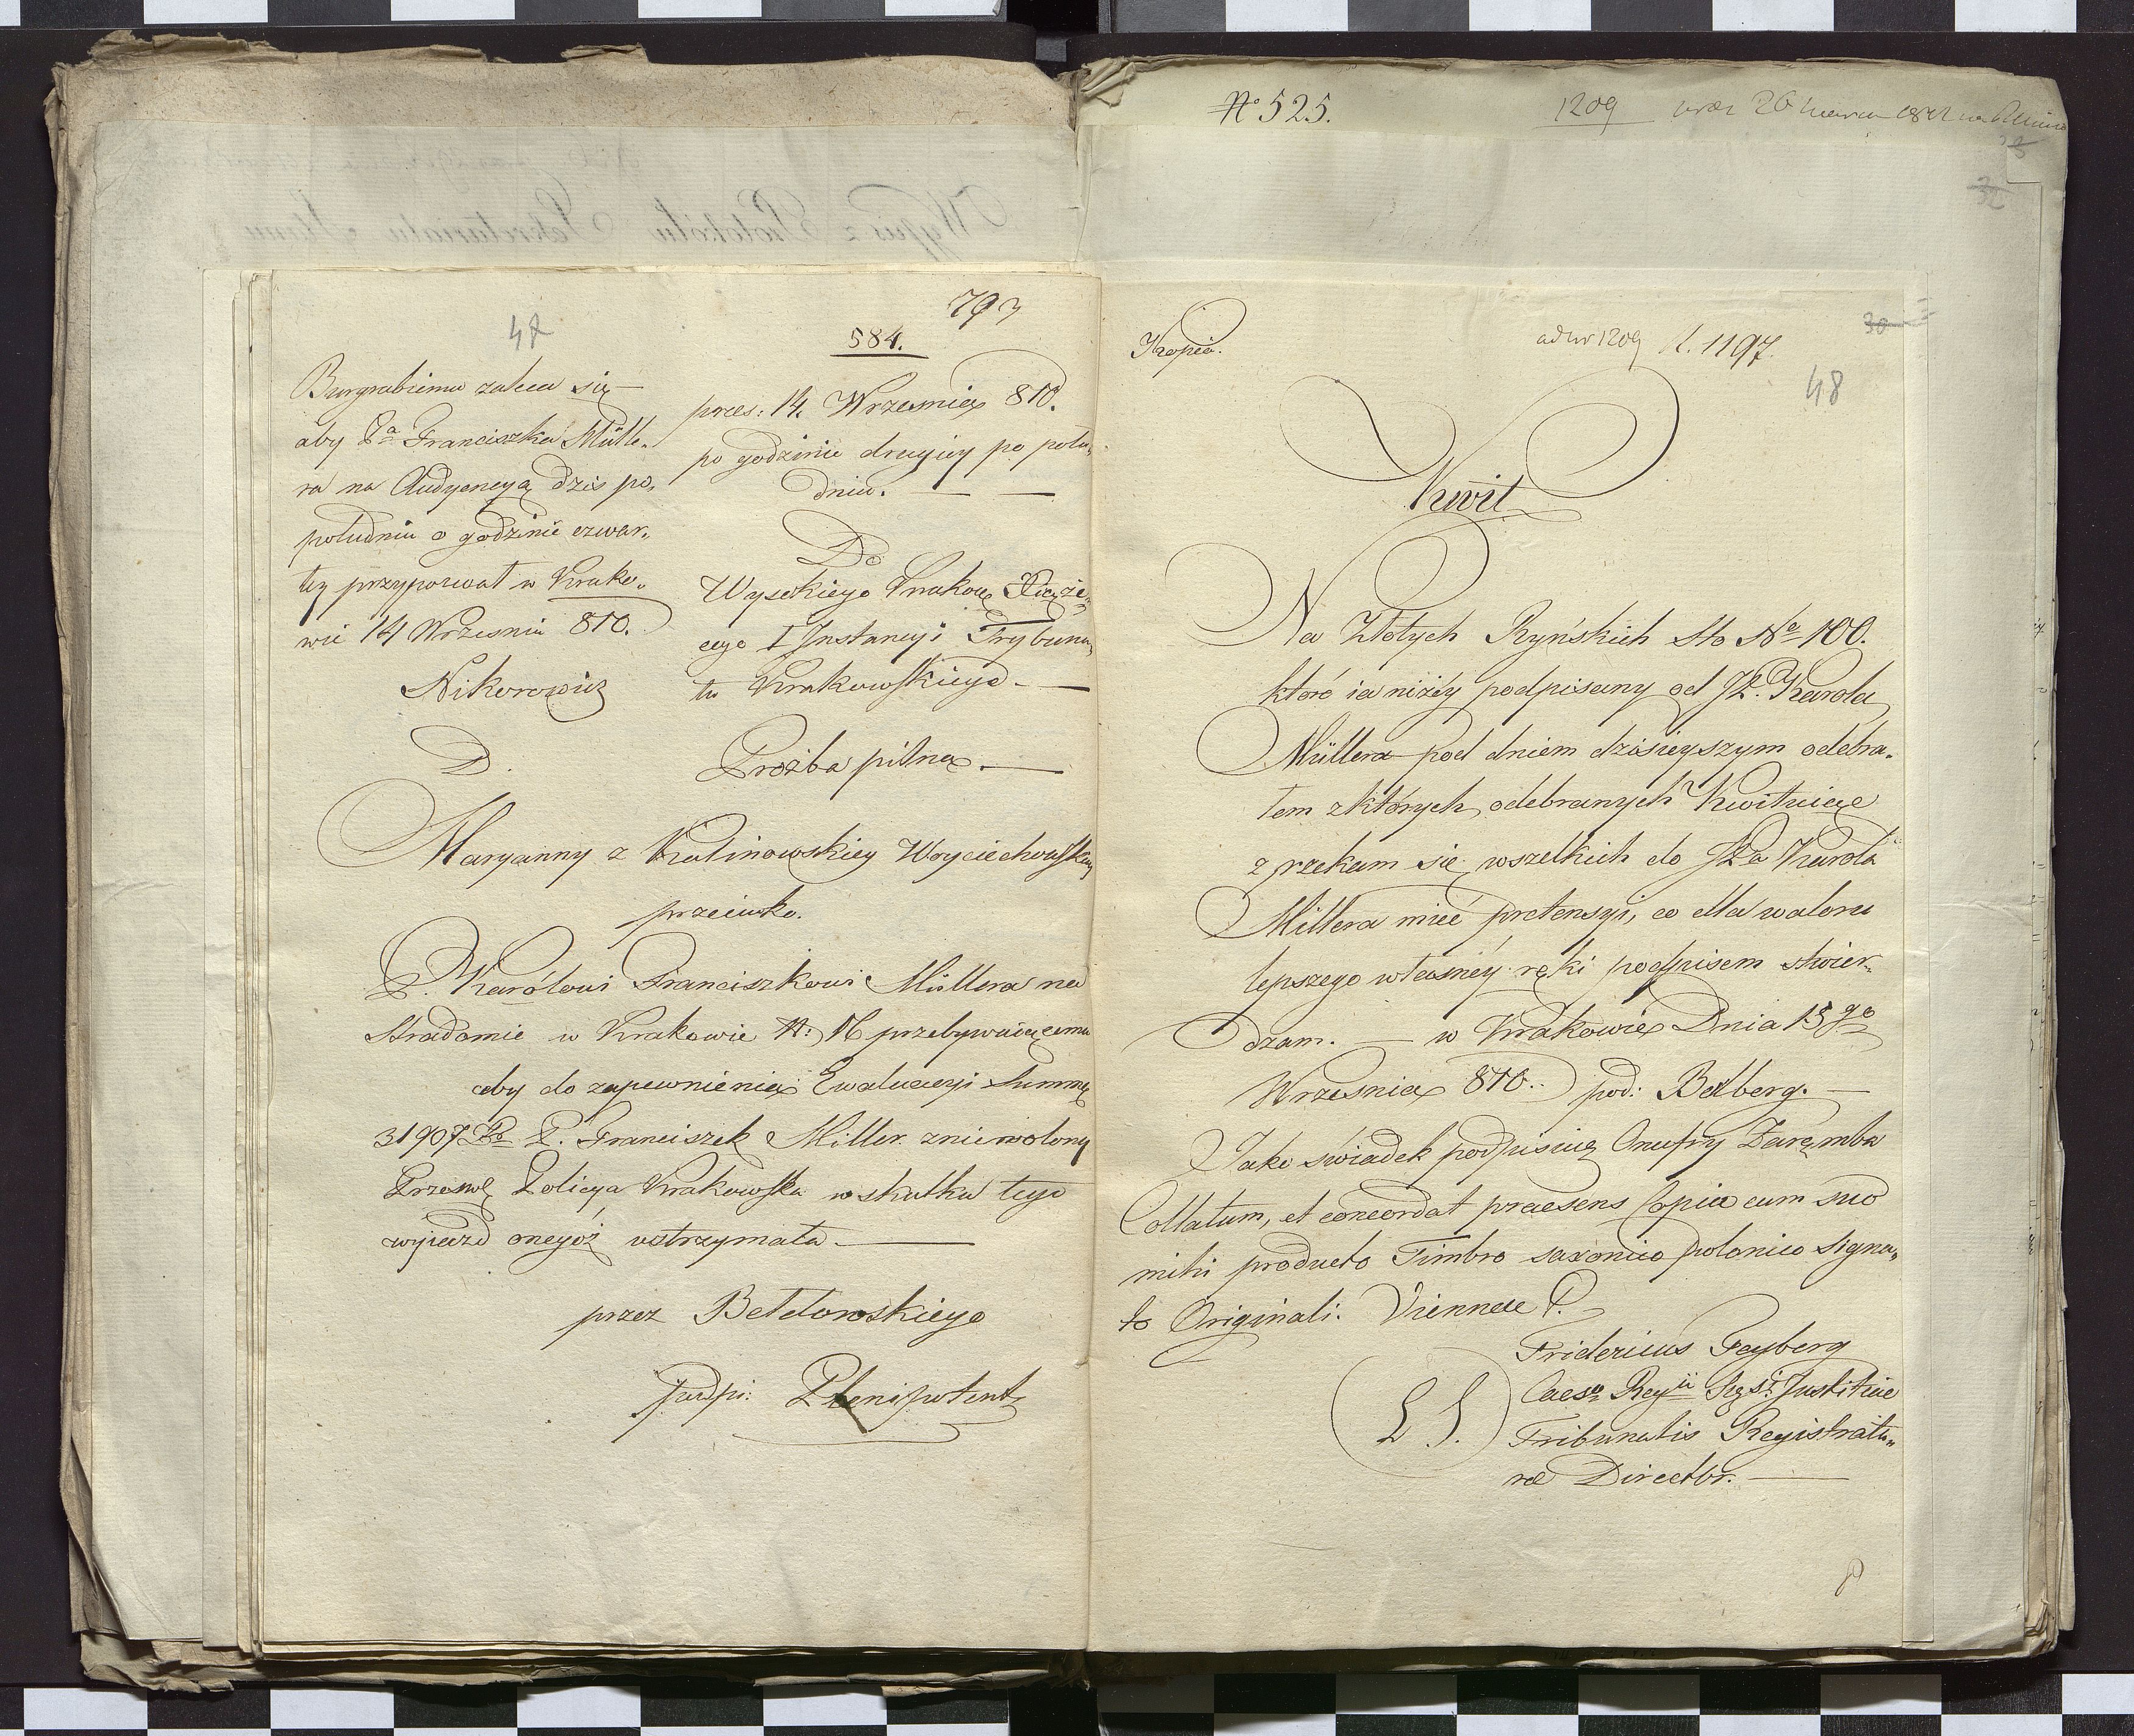 793
584.
47
Burgrabiemu zaleca się
aby Pa Franciszka Mülle-
ra na Audyencyą dziś po
południu o godzinie czwar-
tey przypozwał w Krako-
wie 14 Wrzesnia 810.
Nikorowicz
pres: 14. Wrzesnia 810.
po godzinie drugiey po połu-
dniu.
Do
Wysokiego Krakow Xiąże-
cego I Instancyi Trybuna-
łu Krakowskiego.
Prozba pilna.
D.
Maryanny z Kalinowskiey Woyciechowskiey
przeciwko.
P. Karólowi Franciszkowi Müllera na
Stradomie w Krakowie N: 16 przebywaiącemu
aby do zapewnienia Ewaluacyi Summę
31907 P. Franciszek Miller zniewolony
Przeswę Policya Krakowska w skutku tego
wyiazd onegóż wstrzymała.
przez Beldowskiego
podpi: Plenipotent
N° 525.
1209
30
ad nr 1209 l. 1197.
48
Kopia.
Kwit
Na Złotych Ryńskich Sto No 100.
któré ia niżéy podpisany od JP. Karola
Müllera pod dniem dzisieyszym odebra-
łem z których odebranych Kwituiąc
zrzekam się wszelkich do JPa Karola
Millera mieć pretensyi, co dla waloru
lepszego własnéy ręki podpisem stwier-
dzam. — w Krakowie Dnia 15go
Wrzesnia 810. pod: Belberg.
Jako świadek podpisuię Onufry Zaręmba
Collatum, et concordat praesens Copia cum suo
mihi producto Timbro saxonico polonico signa-
to Originali. Viennae P.
Fridericus Feyberg
Caes. Regii Justitiae
Tribunalis Registratu-
rae Director.
L S.